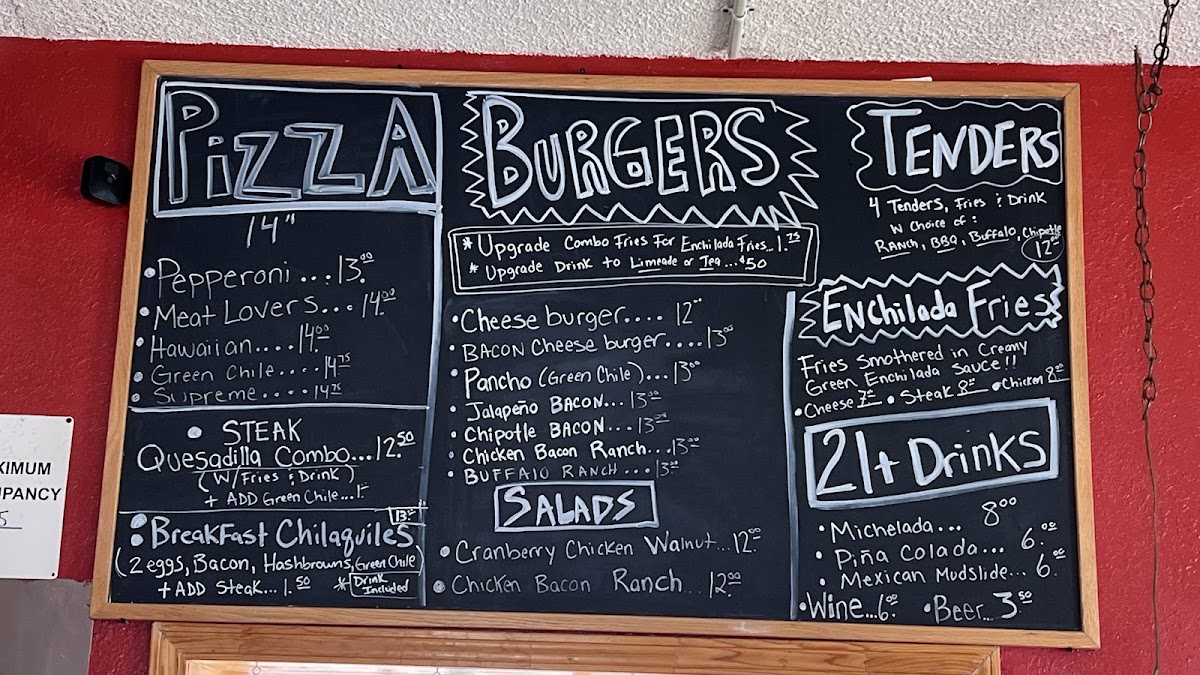 PIZZA
14"
• Pepperoni ... 13.00
• Meat Lovers... 14.00
• Hawaiian.... 14.00
• Green Chile.... 14.75
• Supreme.... 14.75
• STEAK
Quesadilla Combo... 12.50
(W/Fries & Drink)
+ ADD Green Chile... 1.-
13.-
• BreakFast Chilaquiles
(2 eggs, Bacon, Hashbrowns, Green Chile)
+ ADD Steak... 1.50 * Drink Included
BURGERS
* Upgrade Combo Fries For Enchilada Fries.. 1.75
* Upgrade Drink to Limeade or Tea...$.50
• Cheese burger.... 12.00
• BACON Cheese burger.... 13.00
• Pancho (Green Chile)... 13.00
• Jalapeño BACON... 13.00
• Chipotle BACON... 13.00
• Chicken Bacon Ranch... 13.00
• BUFFALO RANCH... 13.00
SALADS
• Cranberry Chicken Walnut... 12.00
• Chicken Bacon Ranch... 12.00
TENDERS
4 Tenders, Fries & Drink
W Choice of:
RANCH, BBQ, Buffalo, Chipotle
12.00
ENchilada Fries
Fries Smothered in Creamy
Green Enchilada Sauce!!
• Cheese 7.- • Steak 8.- • Chicken 8.-
21+ Drinks
• Michelada... 8.00
• Piña Colada... 6.00
• Mexican Mudslide... 6.00
• Wine... 6.00 • Beer... 3.50